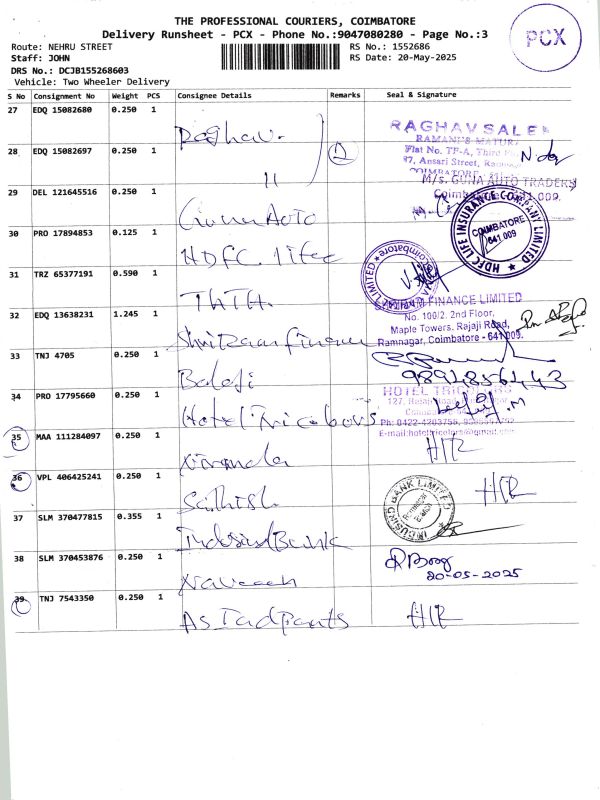 THE PROFESSIONAL COURIERS, COIMBATORE
Delivery Runsheet - PCX - Phone No.:9047080280 - Page No.:3
PCX
Route: NEHRU STREET
RS No.: 1552686
Staff: JOHN
RS Date: 20-May-2025
DRS No.: DCJB155268603
Vehicle: Two Wheeler Delivery
S No Consignment No Weight PCS Consignee Details Remarks Seal & Signature
27 EDQ 15082680 0.250 1 Raghav.
RAGHAV SALE
RAMANI'S MATUR
Flat No. TF-A, Third
97, Ansari Street,
COIMBATORE
28 EDQ 15082697 0.250 1 "
M/s. GUNA AUTO TRADERS
29 DEL 121645516 0.250 1 Guna Auto
30 PRO 17894853 0.125 1 HDFC life
HDFC LIFE INSURANCE COMPANY LIMITED
COIMBATORE
641 009
31 TRZ 65377191 0.590 1
FINANCE LIMITED
No. 100/2. 2nd Floor,
Maple Towers. Rajaji Road,
Ramnagar, Coimbatore - 641 009.
32 EDQ 13638231 1.245 1
33 TNJ 4705 0.250 1 Balaji
34 PRO 17795660 0.250 1 Hotel Tricolours
HOTEL TRICOLORS
Ph: 0422-4203756,
35 MAA 111284097 0.250 1
36 VPL 406425241 0.250 1 Sathish
37 SLM 370477815 0.355 1 IndusindBank
INDUSIND BANK LIMITED
38 SLM 370453876 0.250 1 Naveeen
20-05-2025
39 TNJ 7543350 0.250 1